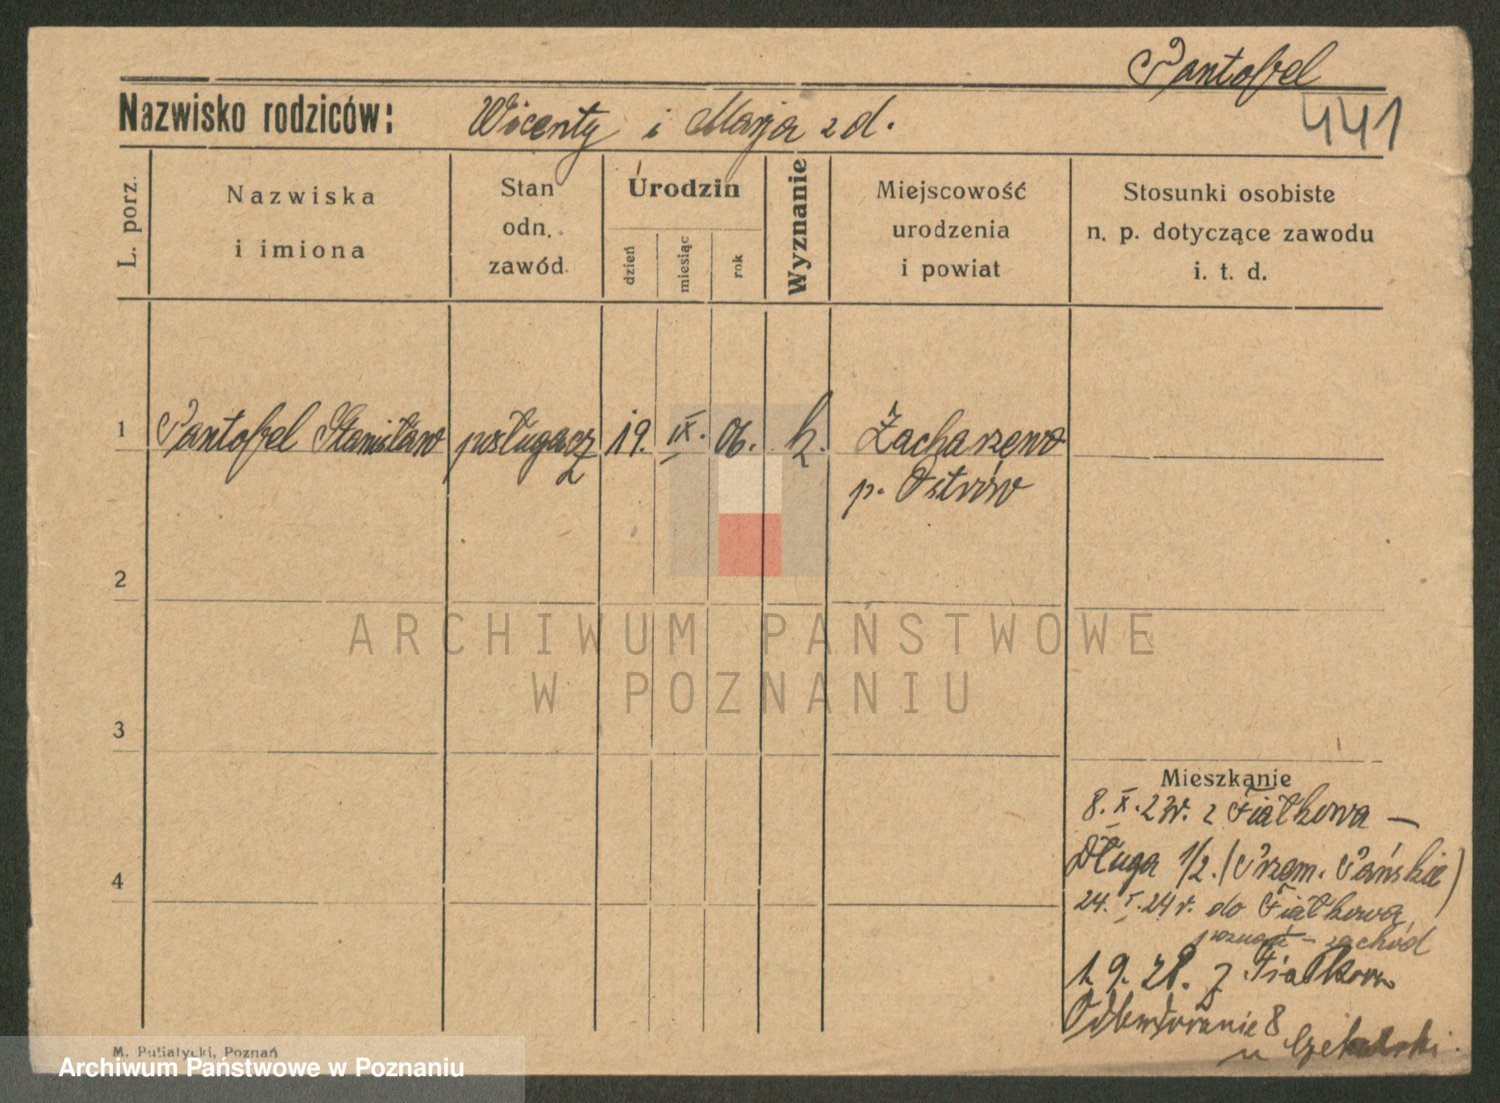 Pantofel
441
Nazwisko rodziców: Wicenty i Marja z d.
L. porz.
Nazwiska
i imiona
Stan
odn.
zawód.
Urodzin
dzień
miesiąc
rok
Wyznanie
Miejscowość
urodzenia
i powiat
Stosunki osobiste
n. p. dotyczące zawodu
i. t. d.
1 Pantofel Stanisław posługacz 19. IX. 06. k. Zacharzewo
p. Ostrów
2
ARCHIWUM PAŃSTWOWE
W POZNANIU
3
Mieszkanie
8. X. 23r. z Fiałkowa —
Długa 1/2. (Przem. Pańskie)
4
24. I. 24 r. do Fiałkowa
poznań - zachód
1. 9. 28. z Fiałkowa
8
u
M. Putiatycki, Poznań
Archiwum Państwowe w Poznaniu